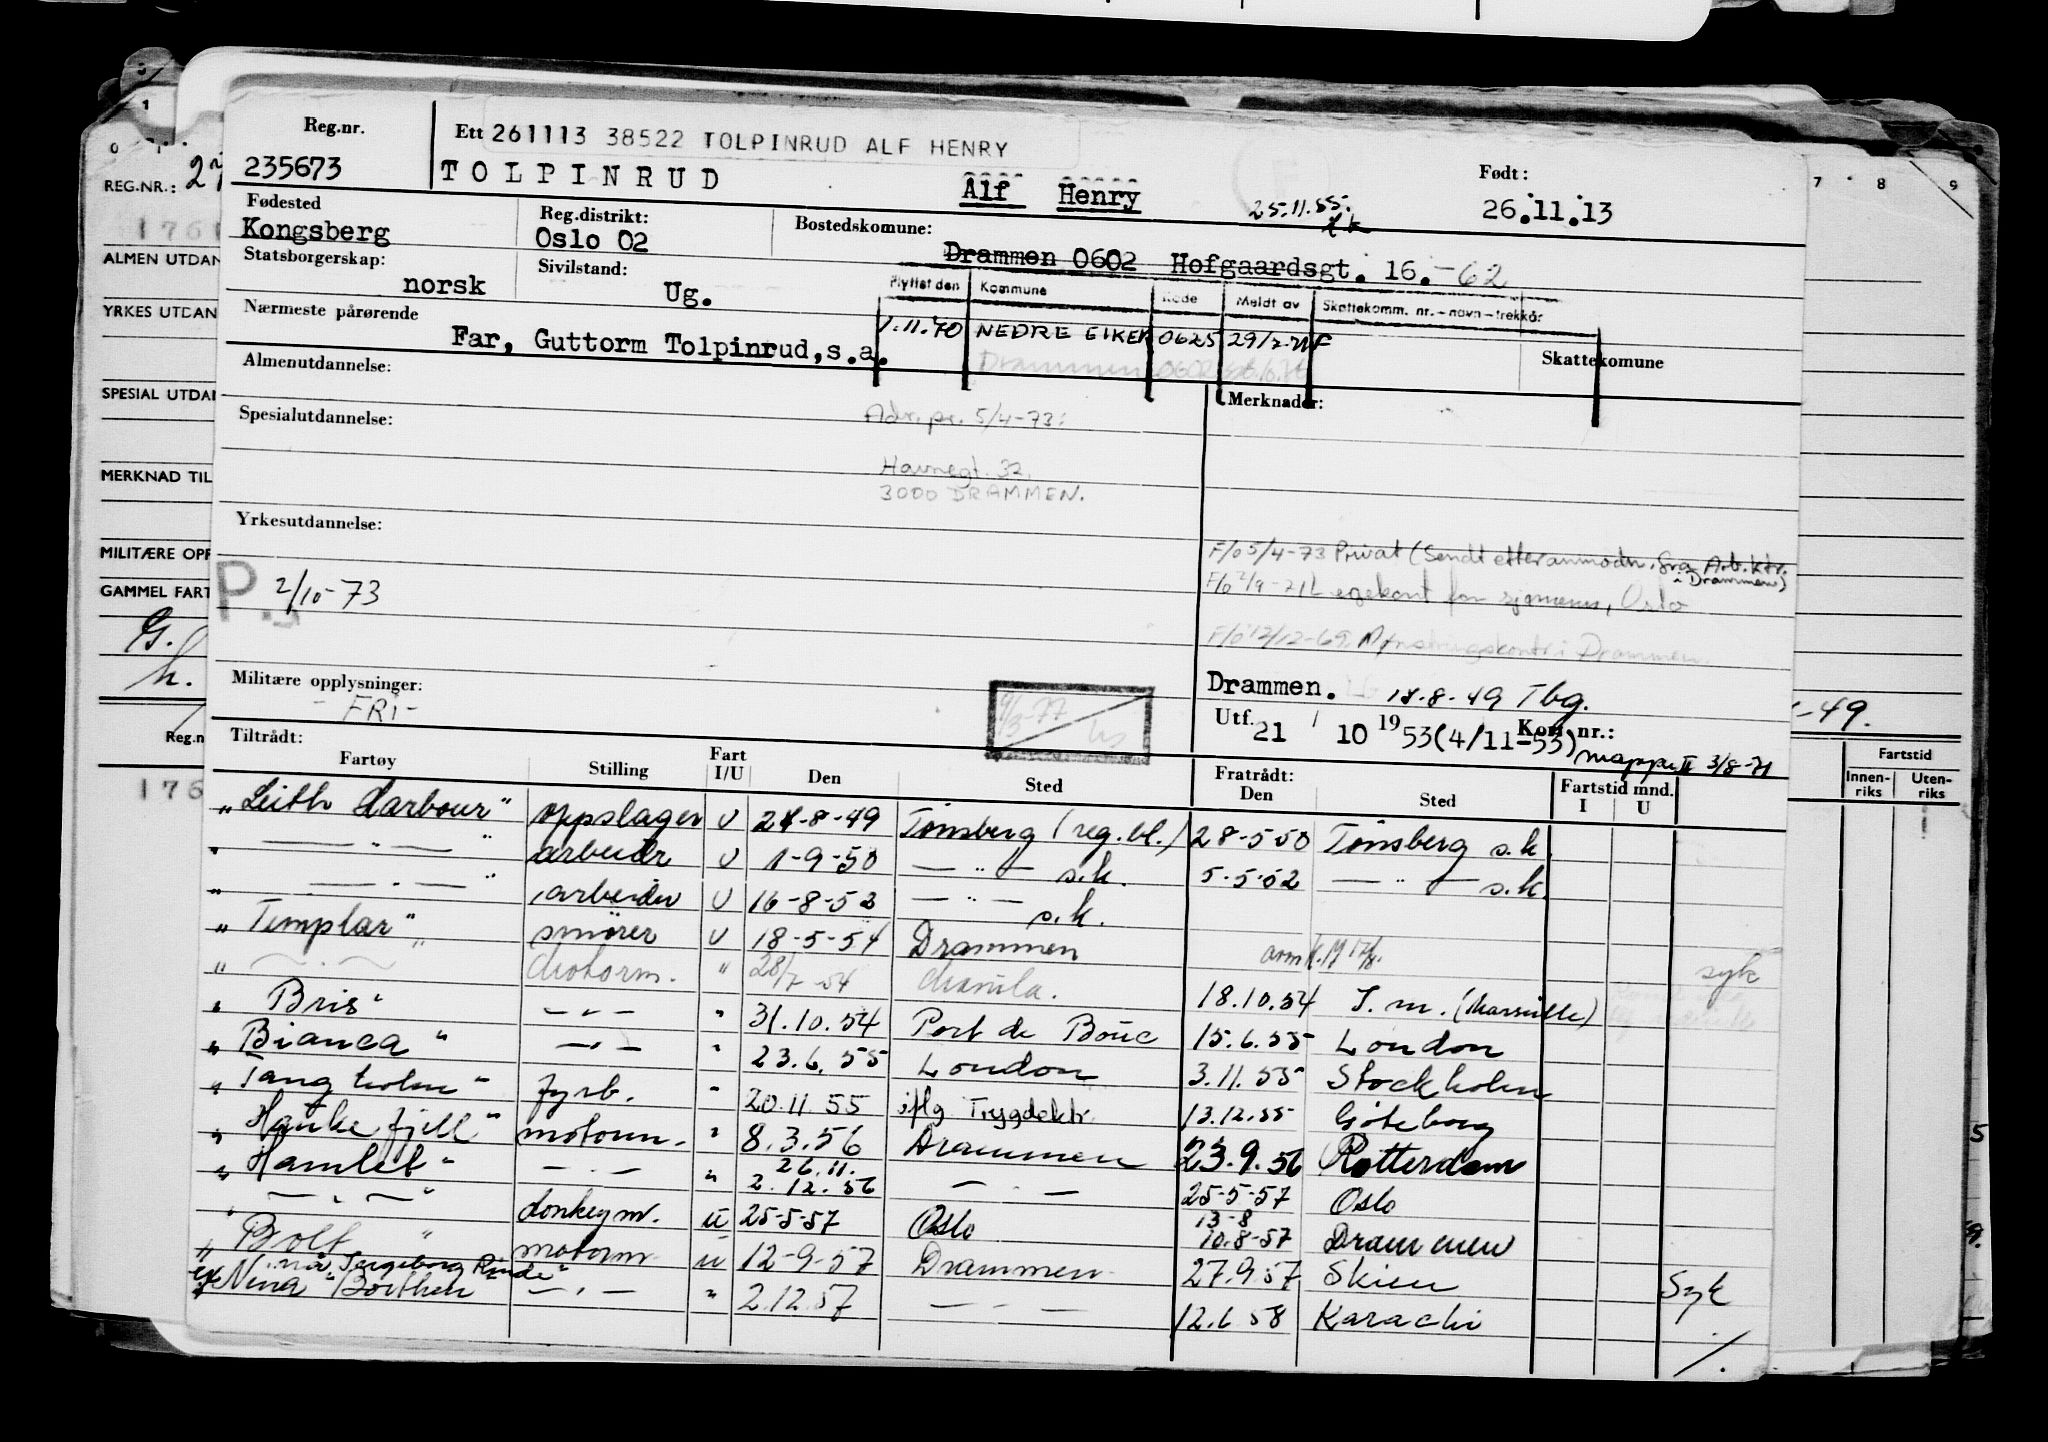 Reg.nr. Ett 261113 38522 TOLPINRUD ALF HENRY
235673 TOLPINRUD Alf Henry Født: 26.11.13
25.11.55.
Fødested Reg.distrikt: Bostedskomune:
Kongsberg Oslo 02 Drammen 0602 Hofgaardsgt. 16. -62
Statsborgerskap: norsk Sivilstand: Ug.
Flyttet den Kommune Kode Meldt av Skattekomm. nr. - navn - trekkår
1.11.70 NEDRE EIKER 0625
Drammen 0602
Nærmeste pårørende Far, Guttorm Tolpinrud, s.a.
Skattekomune
Almenutdannelse:
Merknader:
Spesialutdannelse: Adr. pr. 5/4-73:
Havnegt. 32.
3000 DRAMMEN.
Yrkesutdannelse:
F/o 5/4-73 Privat (Sendt etter anmodn. fra Arb.ktr. i Drammen)
F/o 2/9-71 Legekont for sjømenn, Oslo
F/o 12/12-69. Mønstringskontr i Drammen.
P. 2/10-73
Militære opplysninger: - FRI -
Drammen. 18.8.49 Tbg.
Utf. 21 / 10 1953 (4/11-53) Kort nr.: mappe II 3/8-71
Tiltrådt: Fratrådt:
Fartøy Stilling Fart I/U Den Sted Den Sted Fartstid mnd. I U
"Leith Harbour" oppslager U 24-8-49 Tønsberg (reg.bl.) 28-5-50 Tønsberg s.k.
" — " — " arbeider U 1-9-50 — " — s.k. 5-5-52 — " — s.k.
" — " — " arbeider U 16-8-52 — " — s.k.
"Templar" smører U 18-5-54 Drammen
" — " — motorm. " 28/7-54 Manila. 18.10.54 S.m. (Marseille) syk
"Bris" — " — " 31.10.54 Port de Bouc 15.6.55 London
"Bianca" — " — " 23.6.55 London 3.11.55 Stockholm
"Tangholm" fyrb. " 20.11 55 iflg Trygdektr. 13.12.55 Göteborg
"Haukefjell" motorm. " 8.3.56 Drammen 23.9.56 Rotterdam
"Hamlet" — " — " 26.11. 2.12.56 — " — 25-5-57 Oslo
" — " — " donkeym. U 25-5-57 Oslo 13-8 10.8-57 Drammen
"Bolt" motorm U 12-9-57 Drammen 27.9.57 Skien Syk
ex "Nina Borthen" — " — " 2.12.57 — " — 12.6 58 Karachi
REG.NR.:
ALMEN UTDAN
YRKES UTDAN
SPESIAL UTDAN
MERKNAD TIL
MILITÆRE OPP
GAMMEL FART
Reg.n
176
Fartstid
Innenriks Utenriks
7 8 9